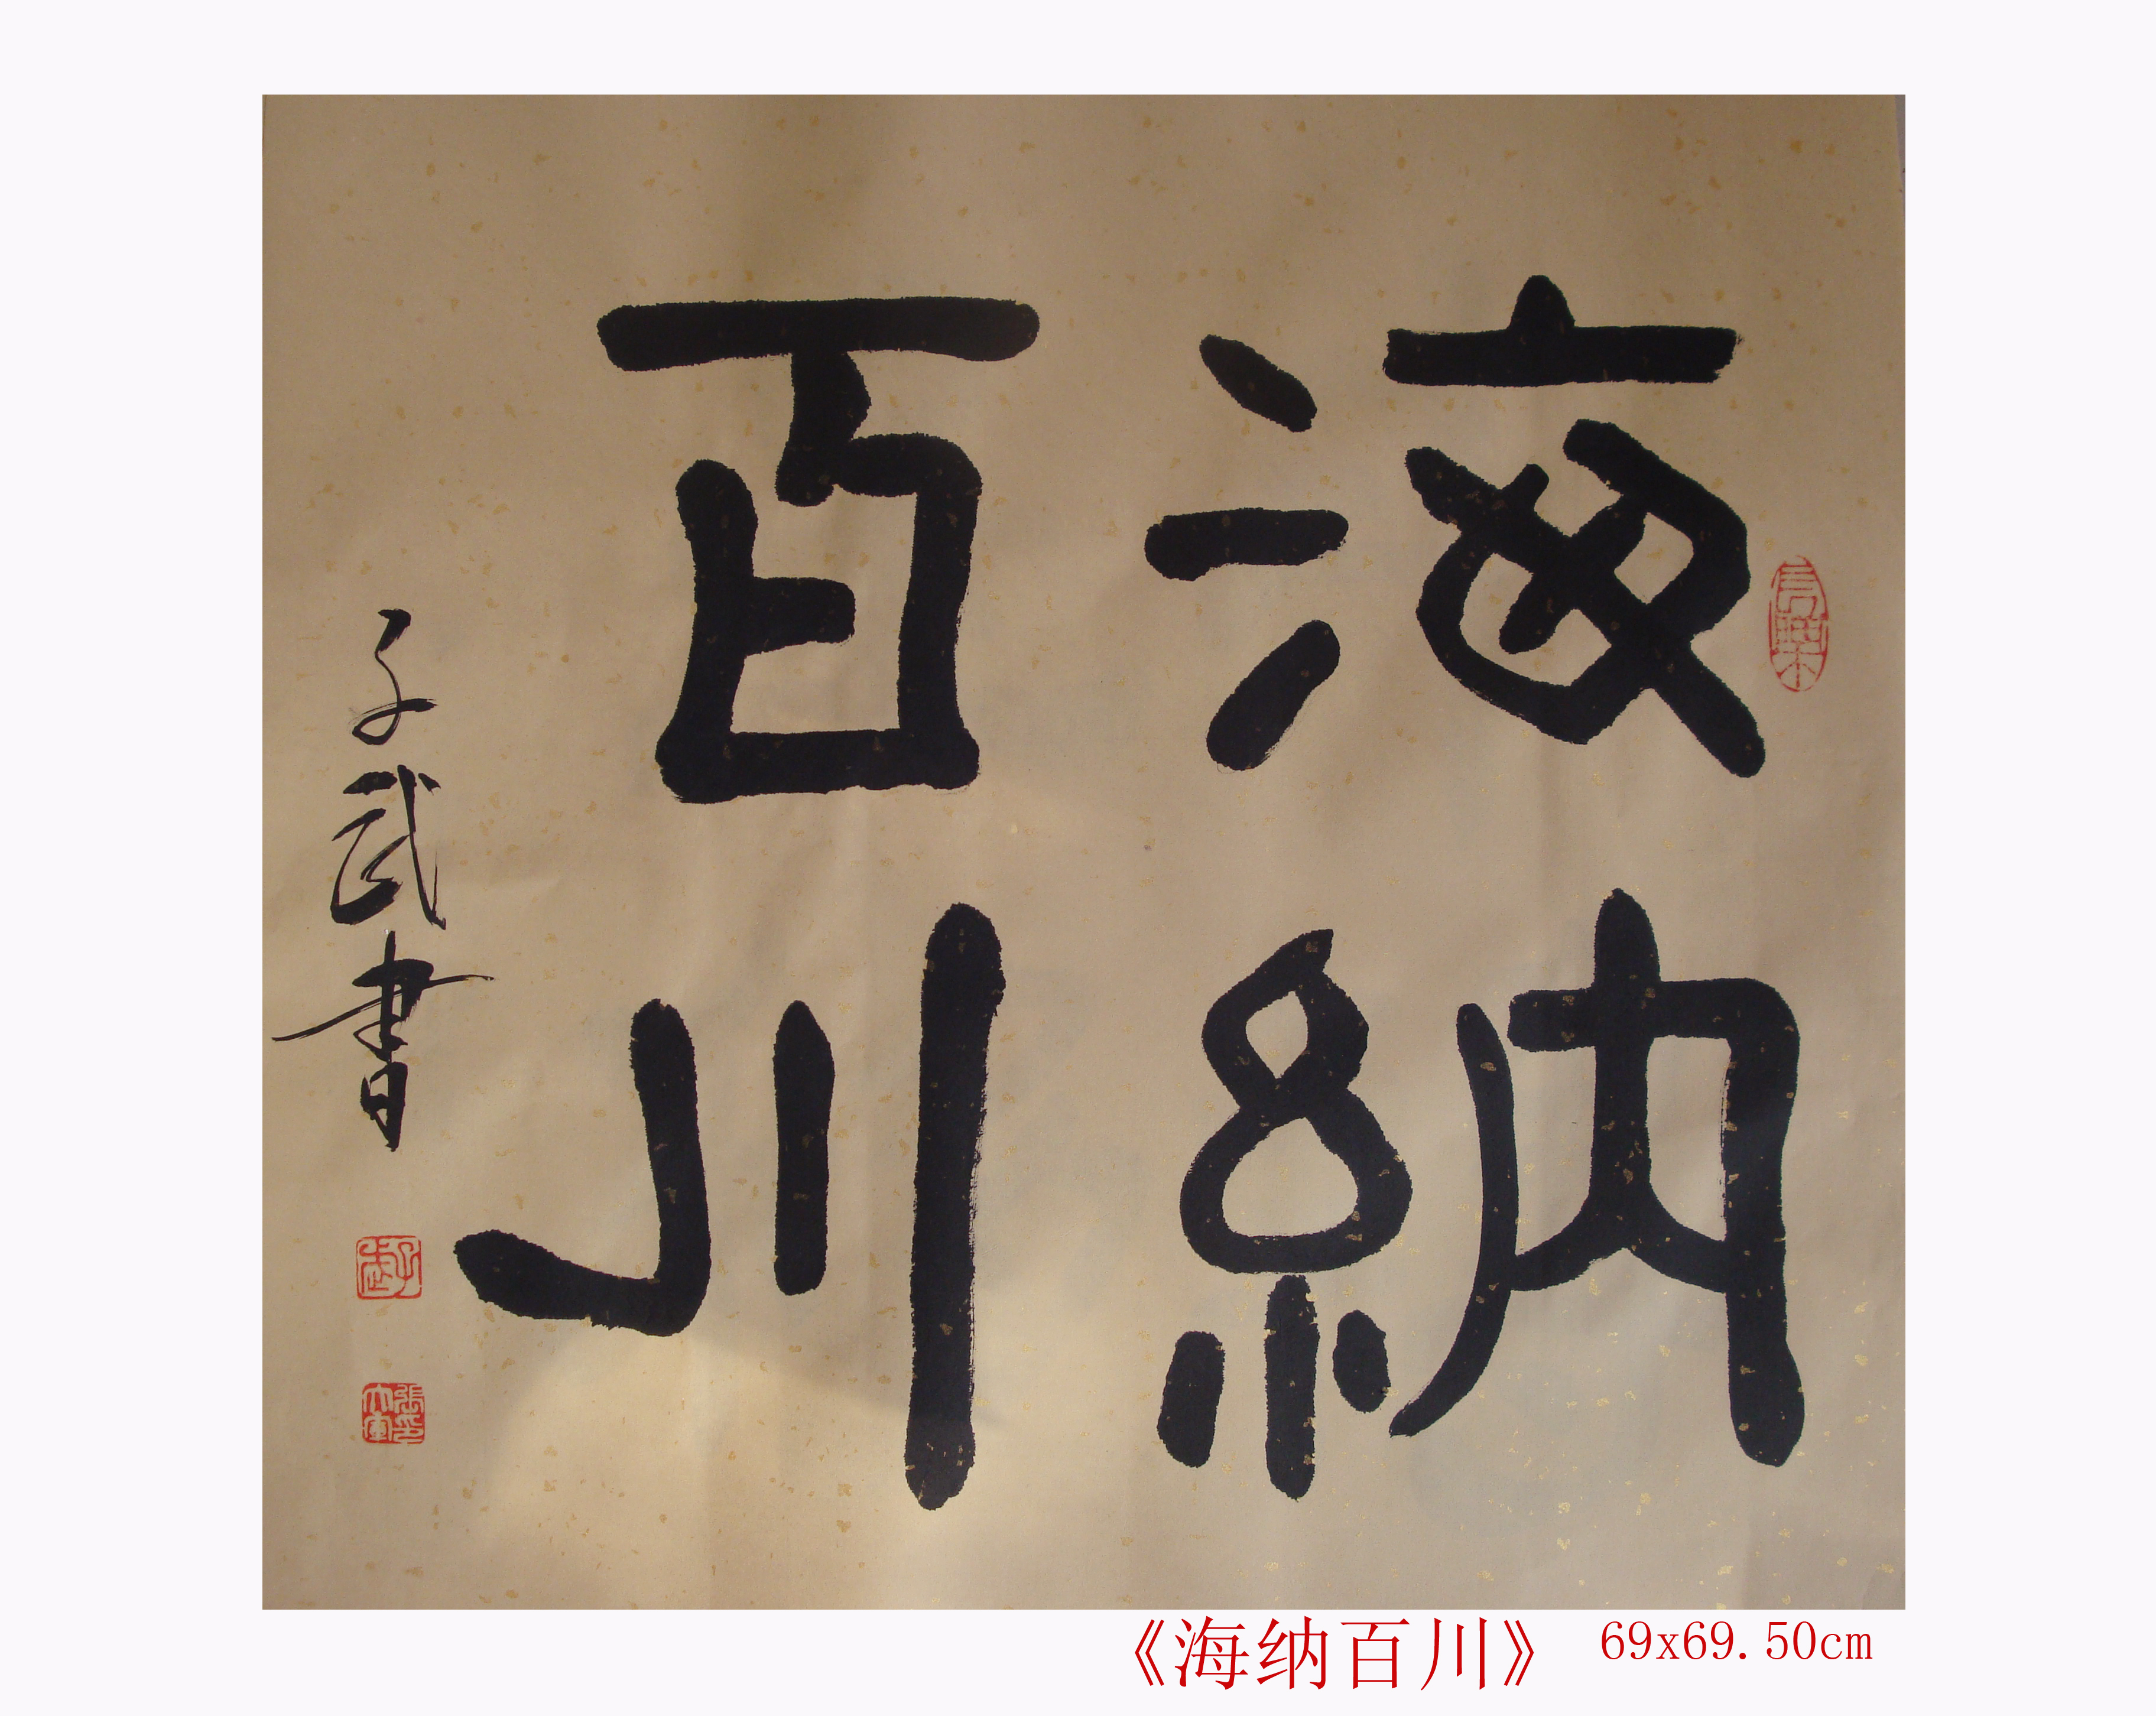 海納
百川
子武書
《海纳百川》 69x69.50cm